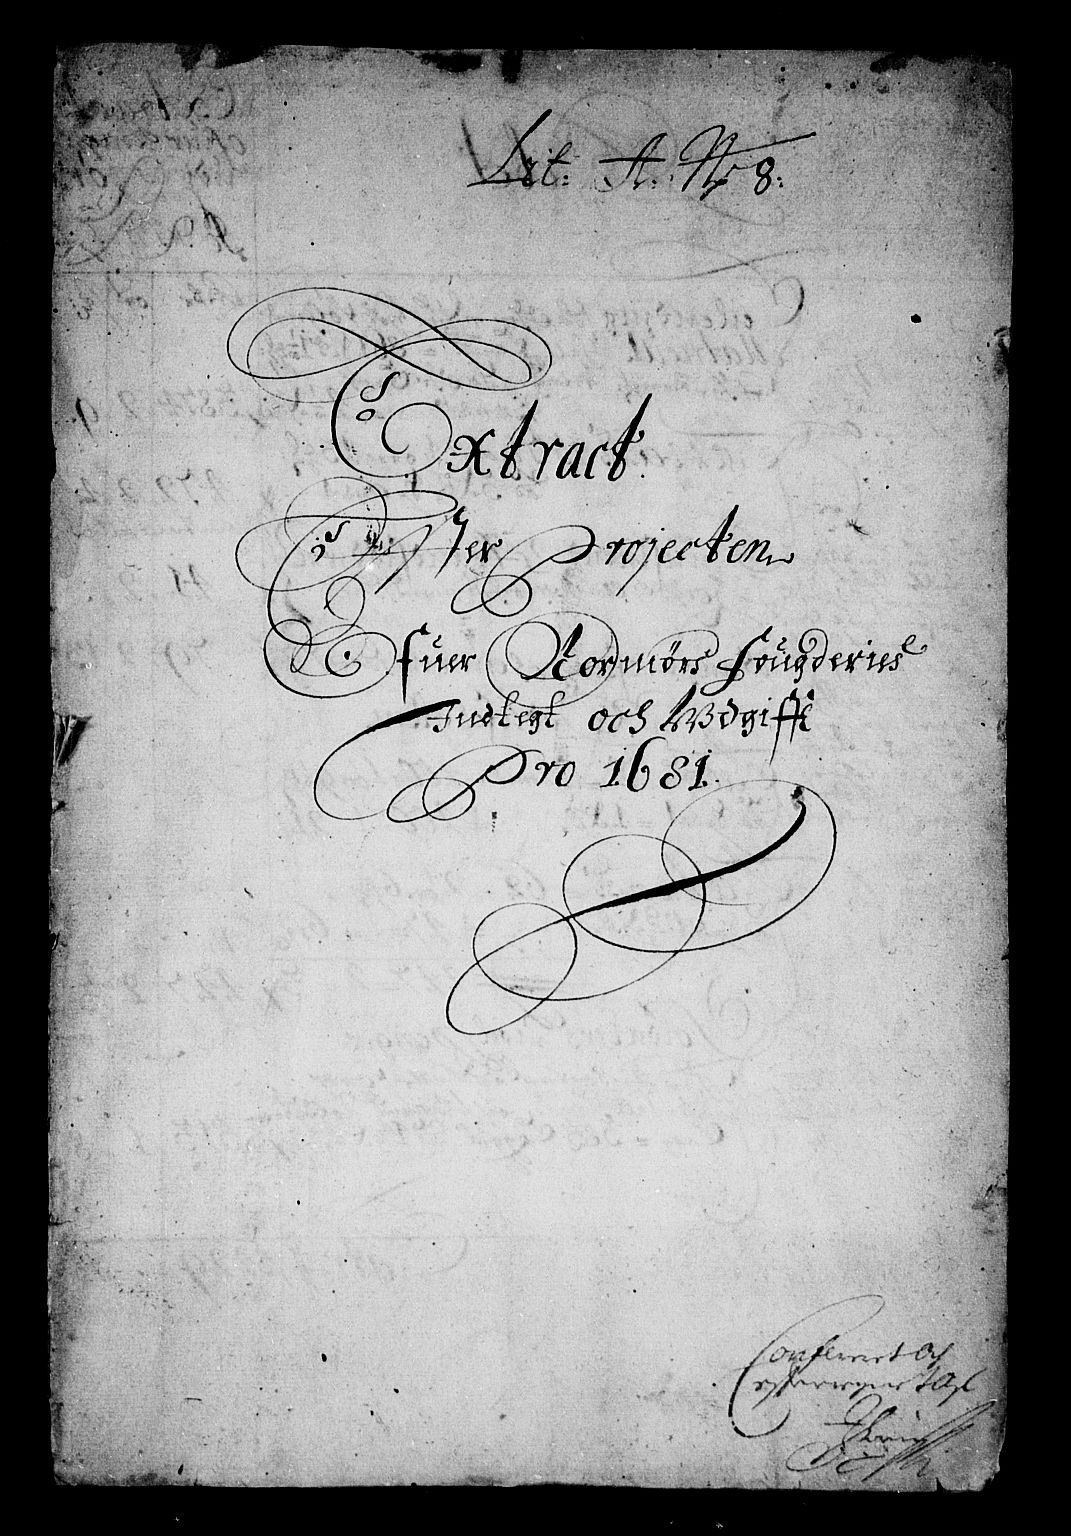 Lit: A. No 8:
Extract
Effter Projecten
Ofuer Normørs Fougderies
Indtegt och Vdgifft
Pro 1681.
Confererit och